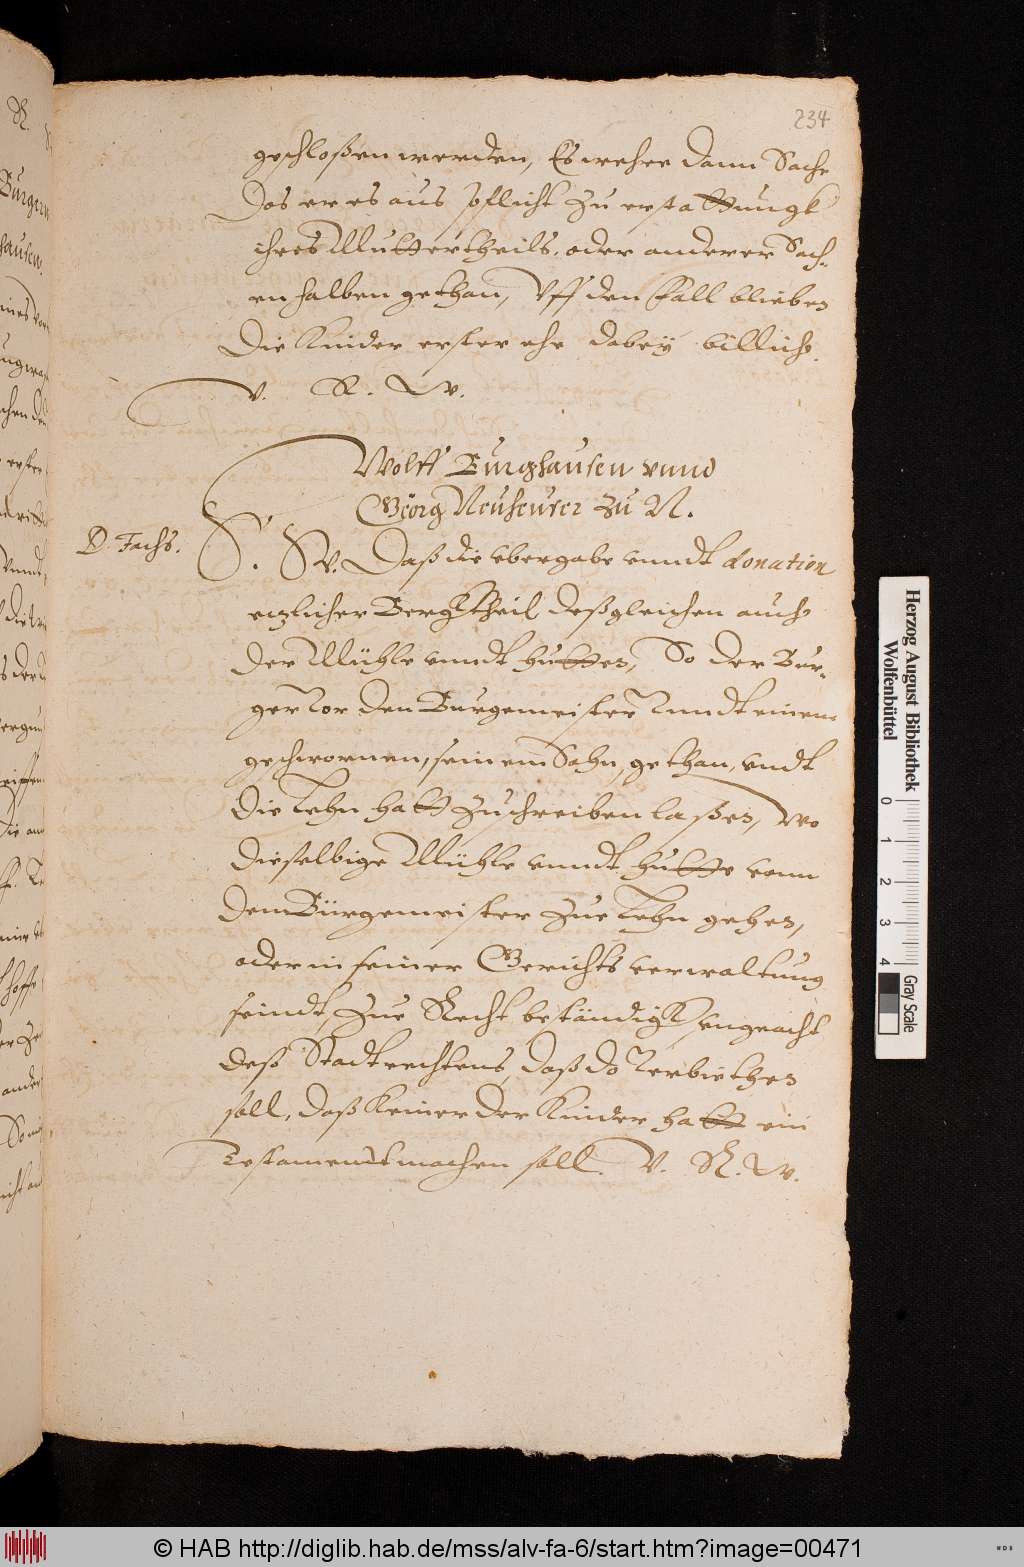 234
geschloßen werden, Es wehre dann Sache
Das er es aus pflicht zu erstattungk
ihres Muttertheils, oder anderer Sach-
en halben gethan, Uff den Fall blieben
Die Kinder erster ehe dabey billich.
V. R. W.
Wolff Burghausen vnnd
Georg Neuheuser zu N.
D. Fachs.
S. H V. Daß die vbergabe vnndt donation
etzlicher Bergktheil, deßgleichen auch
der Mühle vnndt hutten, So der Bur-
ger Vor den Burgemeister Vnndt einem
geschwornen, seinem Sohn, gethan, vndt
die Lehn hatt zuschreiben laßen, Wo
dieselbige Mühle vnndt hutte vonn
dem Bürgemeister zue Lehn gehen,
oder in seiner Gerichts verwaltung
seindt, zue Recht bestandigk, vngeacht
deß Stadtrechtens, daß do Verbiethen
soll, daß Keiner der Kinder hatt ein
Testamendt machen soll. V. R. W.
Herzog August Bibliothek
Wolfenbüttel
0 1 2 3 4
Gray Scale
© HAB http://diglib.hab.de/mss/alv-fa-6/start.htm?image=00471